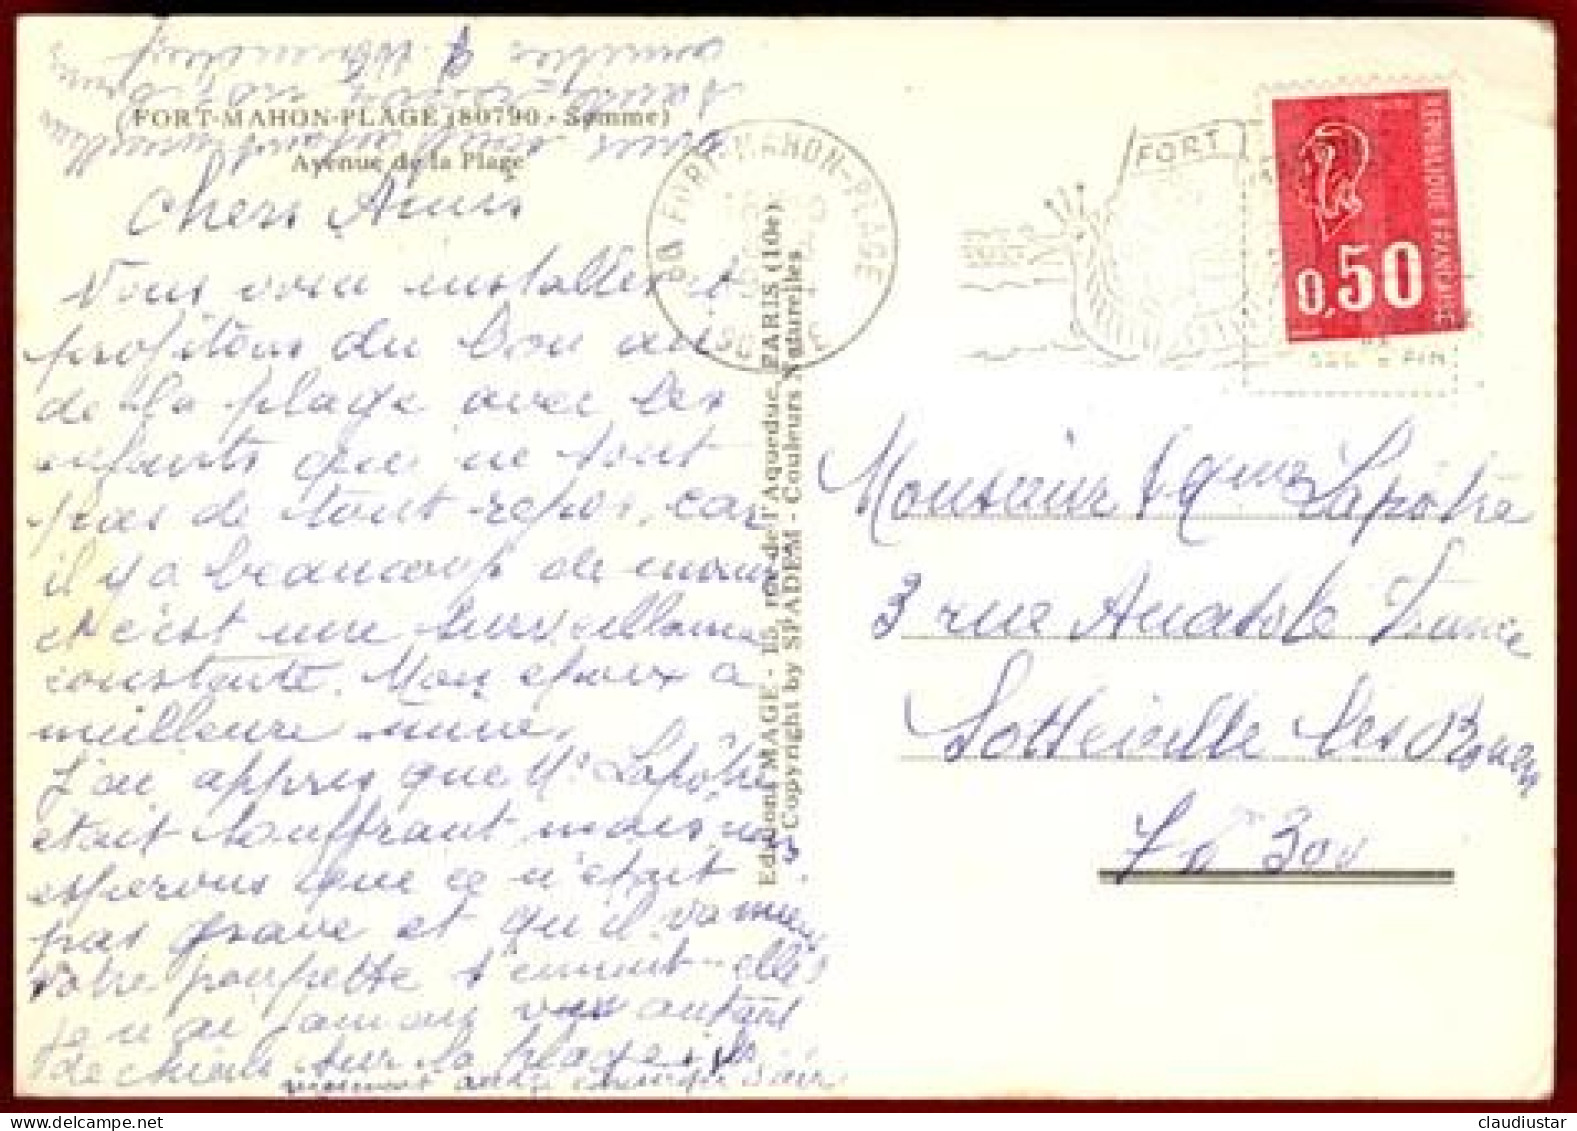 FORT-MAHON-PLAGE (80790 - Somme)
Avenue de la Plage
Chers Amis
Nous voici installés et
profitons du bon air
de la plage avec les
enfants qui ne sont
pas de tout repos, car
il y a beaucoup de monde
et c'est une surveillance
constante. Mon époux a
meilleure mine.
J'ai appris que Mr Lapôtre
était souffrant mais nous
espérons que ce n'était
pas grave et qu'il va mieux
votre poupette s'ennuit-elle?
je n'ai jamais vus autant
de chiens sur la plage ils
viennent aussi changer d'air
Editions MAGE - 115, rue de l'Aqueduc, PARIS (10e).
Copyright by SPADEM - Couleurs Naturelles
80 FORT-MAHON-PLAGE
SOMME
FORT
REPUBLIQUE FRANCAISE
0,50
Monsieur & Mme Lapôtre
3 rue Anatole France
Sotteville les Rouen
76 300
claudiustar